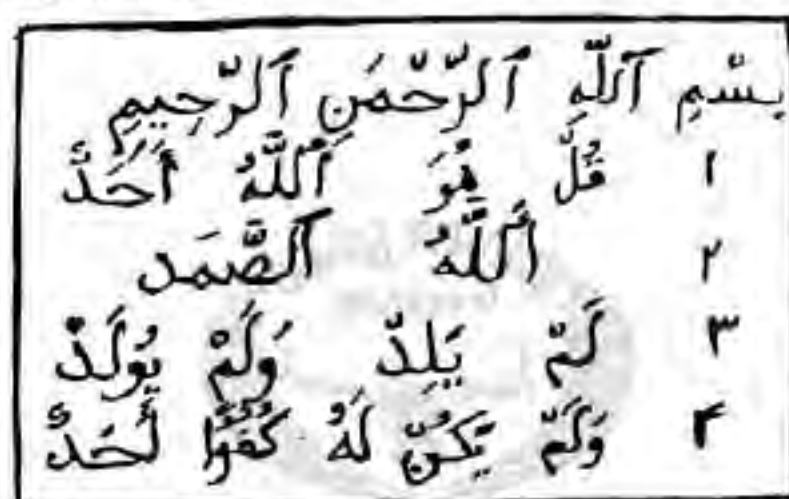 بِسْمِ ٱللَّهِ ٱلرَّحْمَٰنِ ٱلرَّحِيمِ
١ قُلْ هُوَ ٱللَّهُ أَحَدٌ
٢ ٱللَّهُ ٱلصَّمَد
٣ لَمْ يَلِدْ وَلَمْ يُولَدْ
۴ وَلَمْ يَكُنْ لَهُ كُفُوًا أَحَدٌ